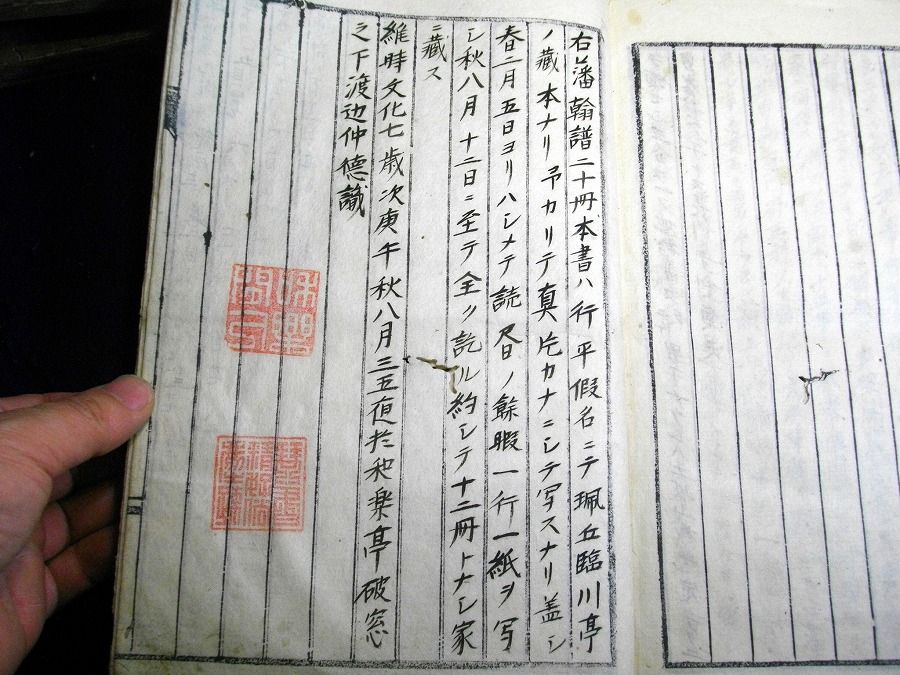 右藩翰譜二十冊本書ハ行平假名ニテ珮丘臨川亭
ノ蔵本ナリ予カリテ真片カナニシテ写スナリ蓋シ
春二月五日ヨリハシメテ読昼ノ餘暇一行一紙ヲ写
シ秋八月十二日ニ至テ全ク訖ル約シテ十二冊トナシ家
ニ蔵ス
維時文化七歳次庚午秋八月三五夜於和楽亭破窓
之下渡辺仲徳識